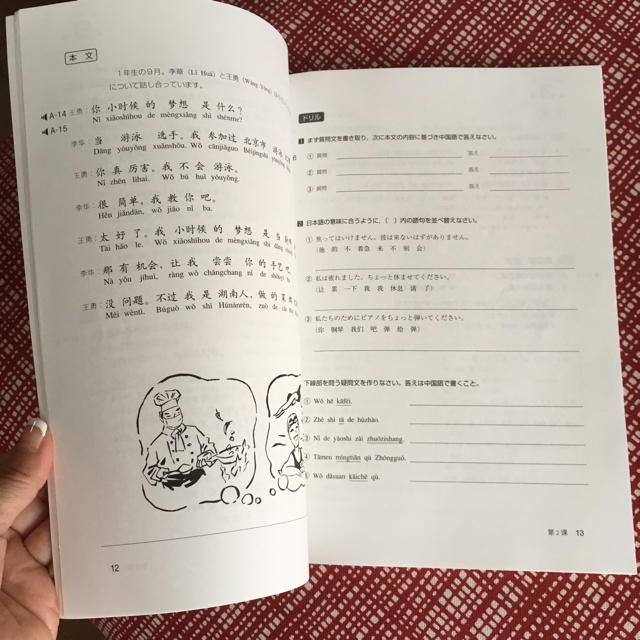 本文
1年生の9月。李華（Lǐ Huá）と王勇（Wáng Yǒng）
について話し合っています。
A-14 王勇：你 小时候 的 梦想 是 什么？
Nǐ xiǎoshíhou de mèngxiǎng shì shénme?
A-15
李华：当 游泳 选手。我 参加过 北京市
Dāng yóuyǒng xuǎnshǒu. Wǒ cānjiāguo Běijīngshì
王勇：你 真 厉害。我 不 会 游泳。
Nǐ zhēn lìhai. Wǒ bú huì yóuyǒng.
李华：很 简单，我 教 你 吧。
Hěn jiǎndān, wǒ jiāo nǐ ba.
王勇：太 好 了。我 小时候 的 梦想 是 当
Tài hǎo le. Wǒ xiǎoshíhou de mèngxiǎng shì dāng
李华：那 有 机会，让 我 尝尝 你 的 手艺 吧。
Nà yǒu jīhuì, ràng wǒ chángchang nǐ de shǒuyì
王勇：没 问题。不过 我 是 湖南人，做 的 菜
Méi wèntí. Búguò wǒ shì Húnánrén, zuò de cài
12
ドリル
1 まず質問文を書き取り、次に本文の内容に基づき中国語で答えなさい。
① 質問 答え
② 質問 答え
③ 質問 答え
2 日本語の意味に合うように、（ ）内の語句を並べ替えなさい。
① 焦ってはいけません。彼は来ないはずがありません。
（他 的 不 着急 来 不 别 会）
② 私は疲れました。ちょっと休ませてください。
（让 累 一下 我 我 休息 请 了）
③ 私たちのためにピアノをちょっと弾いてください。
（你 钢琴 我们 吧 弹 给 弹）
下線部を問う疑問文を作りなさい。答えは中国語で書くこと。
① Wǒ hē kāfēi.
② Zhè shì tā de hùzhào.
③ Nǐ de yàoshi zài zhuōzishang.
④ Tāmen míngtiān qù Zhōngguó.
Wǒ dǎsuan kāichē qù.
第2課 13